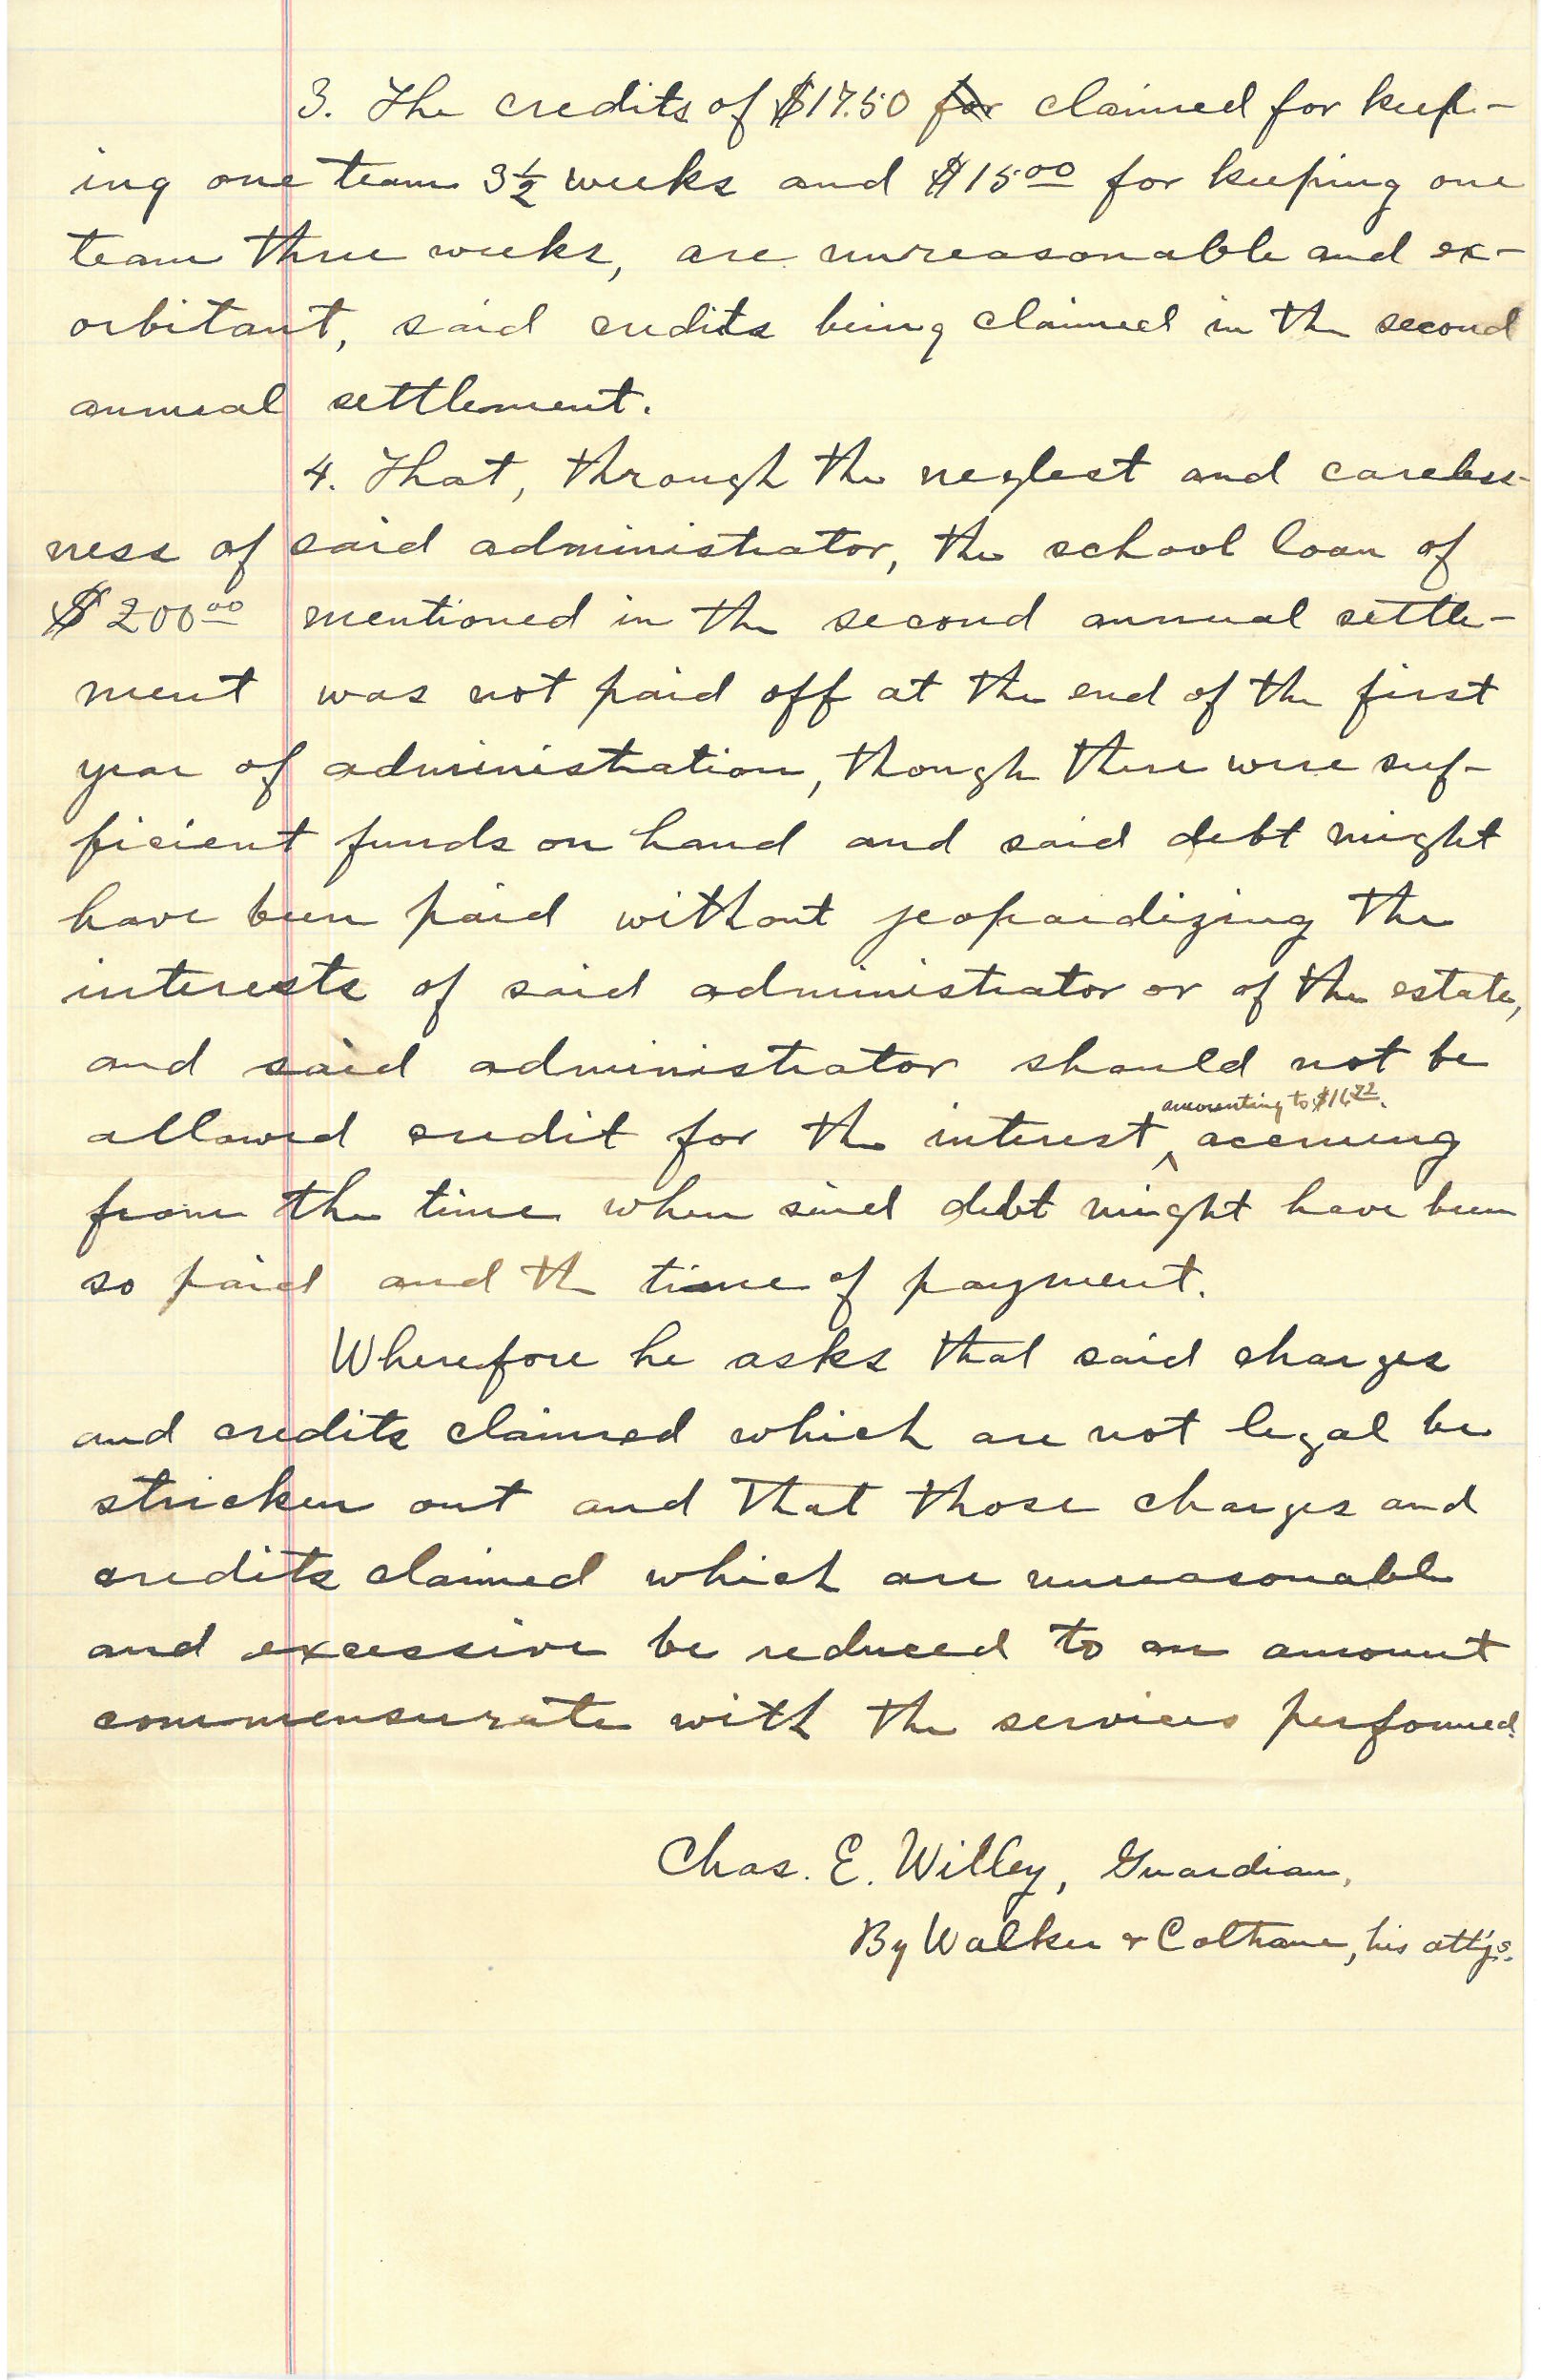 3. The credits of $17.50 for claimed for keep-
ing one team 3½ weeks and $15.00 for keeping one
team three weeks, are unreasonable and ex-
orbitant, said credits being claimed in the second
annual settlement.
4. That, through the neglest and careless-
ness of said administrator, the school loan of
$200.00 mentioned in the second annual settle-
ment was not paid off at the end of the first
year of administration, though there were suf-
ficient funds on hand and said debt might
have been paid without jeopardizing the
interests of said administrator or of the estate,
and said administrator should not be
amounting to
allowed credit for the interest, accruing
from the time when said debt might have been
so paid and th time of payment.
Wherefore he asks that said charges
and credits claimed which are not legal be
stricken out and that those charges and
credits claimed which are unreasonable
and excessive be reduced to an amount
commensurate with the services performed.
Chas. E. Willey, Guardian,
By Walker & Coltrane, his att'ys.